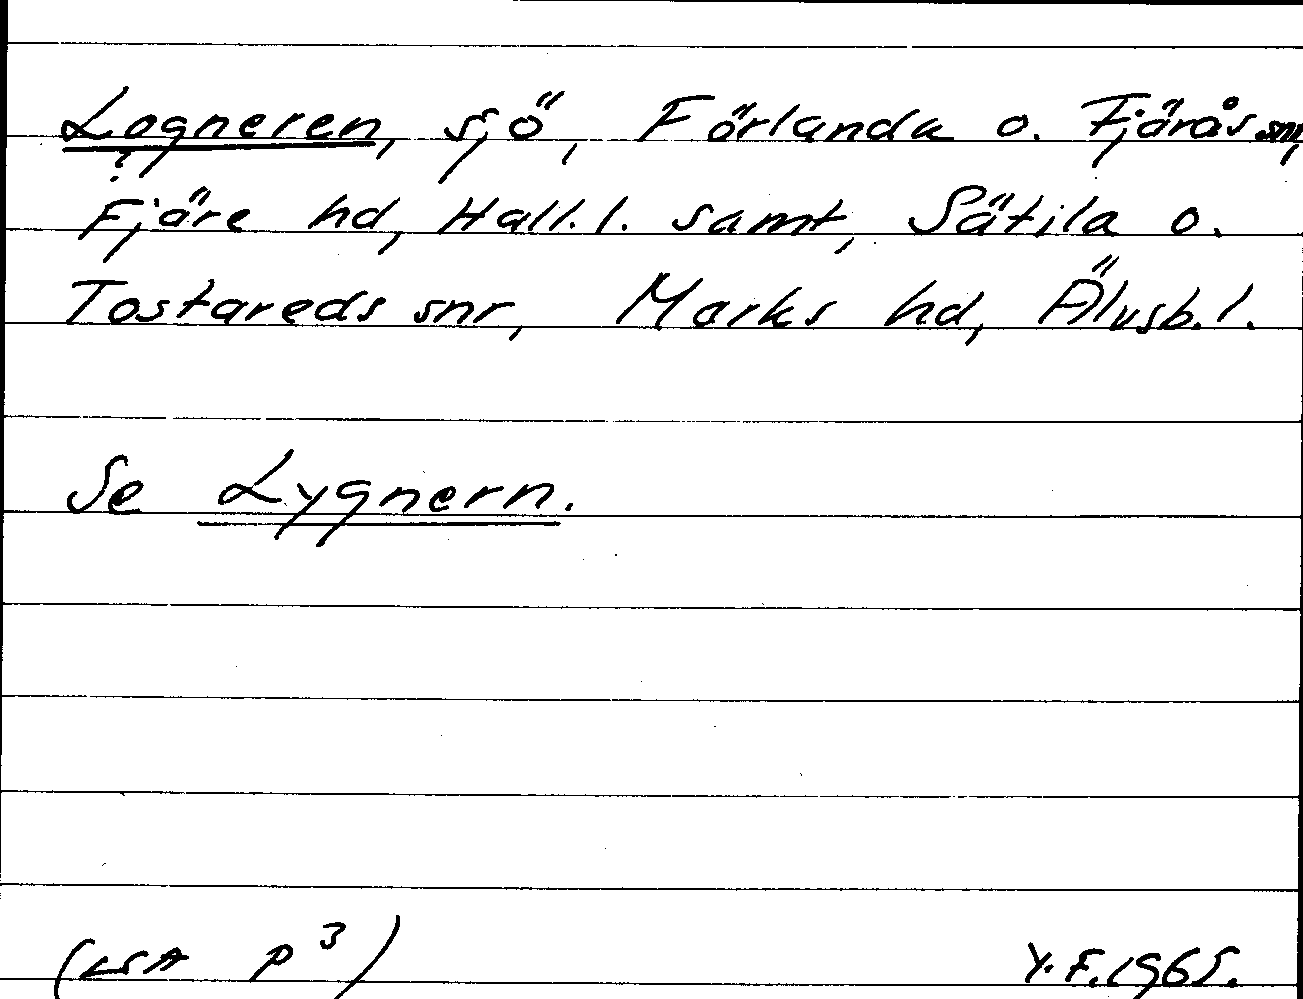 Logneren, sjö, Förlanda o. Fjärås snr,
?
Fjäre hd, Hall. l. samt, Sätila o.
Tostareds snr, Marks hd, Älvsb. l.
Se Lygnern.
(LSA P 3) Y. F. 1965.